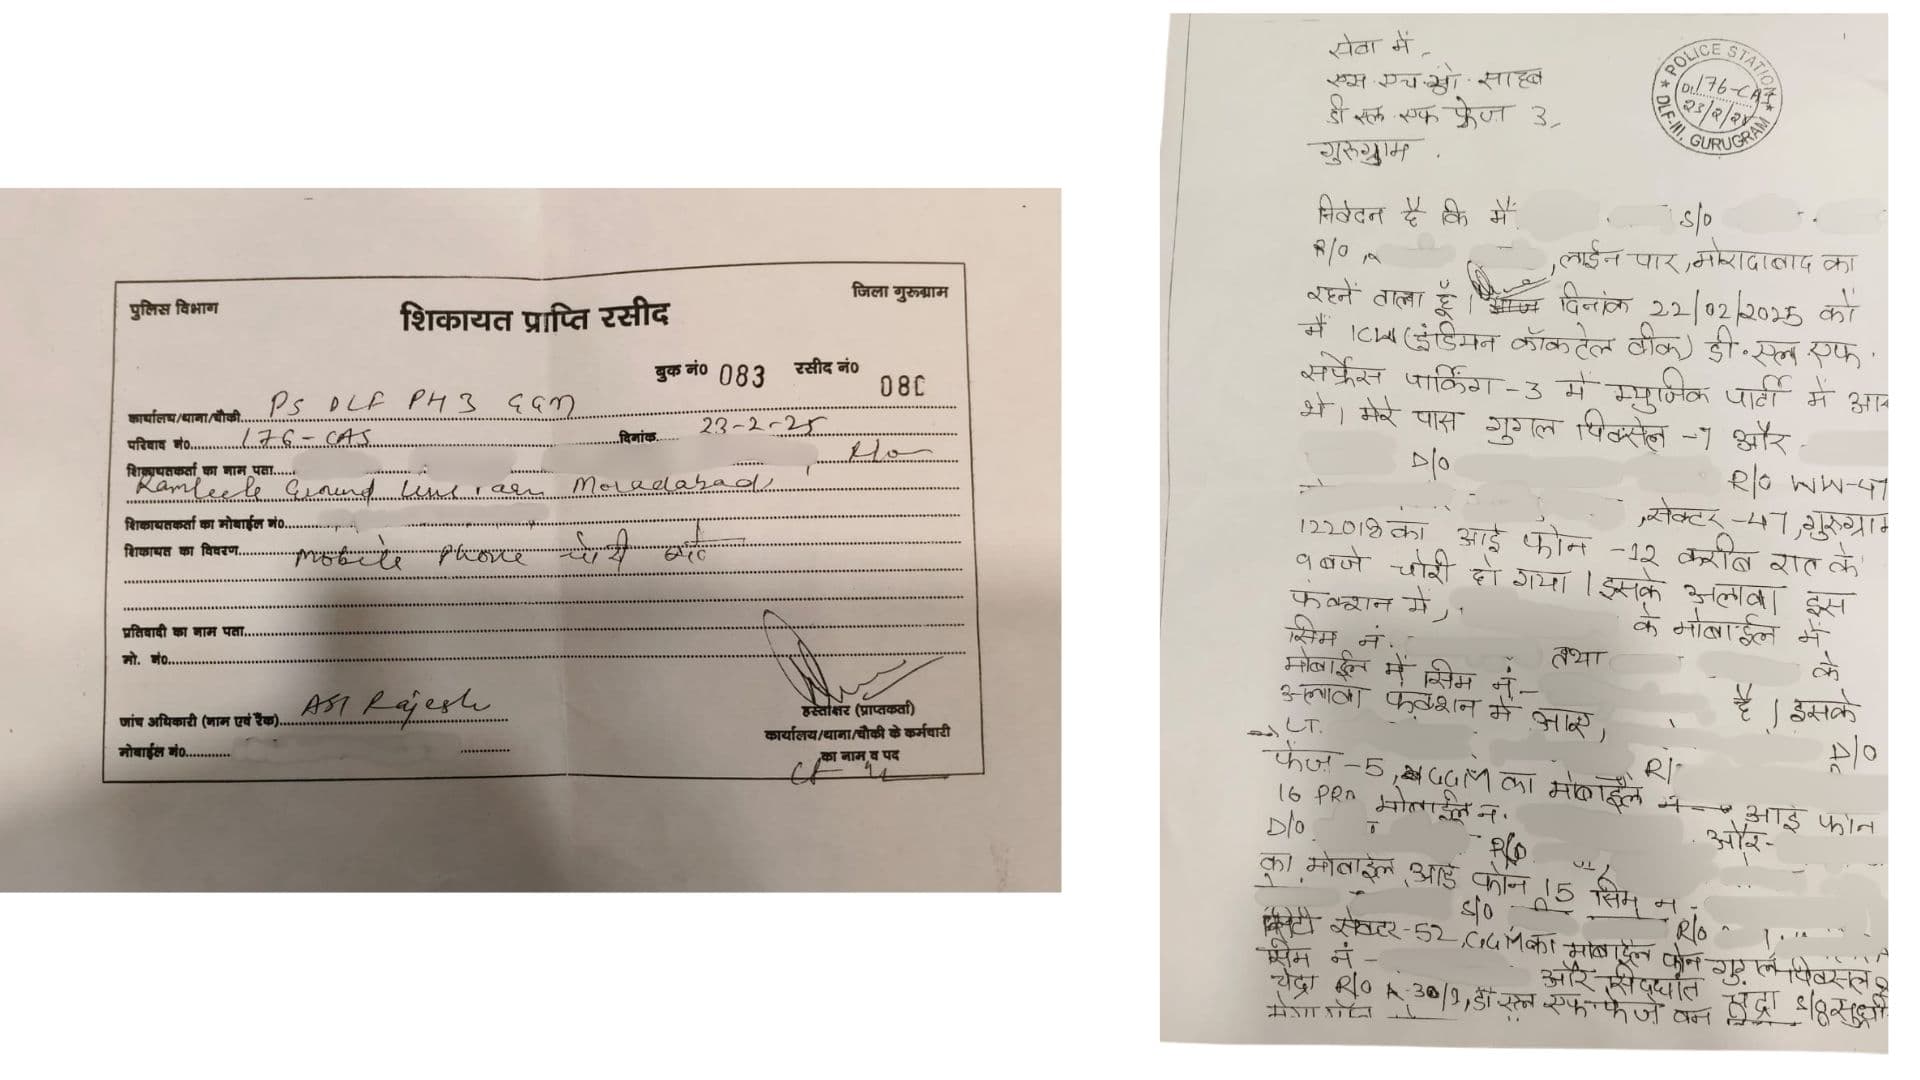 पुलिस विभाग
जिला गुरूग्राम
शिकायत प्राप्ति रसीद
बुक नं० 083 रसीद नं० 080
कार्यालय/थाना/चौकी PS DLF PH 3 GGM
परिवाद नं० 176-CAS दिनांक 23-2-25
शिकायतकर्ता का नाम पता R/o
Ground Moradabad
शिकायतकर्ता का मोबाईल नं०
शिकायत का विवरण Mobile Phone चोरी
प्रतिवादी का नाम पता
मो. नं०
जांच अधिकारी (नाम एवं रैंक) ASI Rajesh
मोबाईल नं०
हस्ताक्षर (प्राप्तकर्ता)
कार्यालय/थाना/चौकी के कर्मचारी
का नाम व पद
सेवा में,
एस एच ओ साहब
डी एल एफ फेज 3,
गुरुग्राम
POLICE STATION
176-CAS
23/2/25
DLF-III, GURUGRAM
निवेदन है कि मैं S/O
R/O , लाईन पार, मोरादाबाद का
रहने वाला हूँ। दिनांक 22/02/2025 को
मैं ICW (इंडियन कॉकटेल वीक) डी.एल.एफ.
पार्किंग -3 में म्युजिक पार्टी में
थे। मेरे पास गुगल पिक्सेल -7 और
D/O
R/O WW-47
, सेक्टर -47, गुरुग्राम
122018 का आई फोन -12 करीब रात के
9 बजे चोरी हो गया। इसके अलावा इस
फंक्शन में, के मोबाईल में
सिम नं. तथा के
मोबाईल में सिम नं- है। इसके
अलावा फंक्शन में आए, D/O
R/
फेज -5, GGM का मोबाईल आई फोन
16 PRO मोबाईल न. और-
D/O R/O
का मोबाईल आई फोन 15 सिम न-
S/O R/O
सिटी सेक्टर-52, GGM का मोबाईल फोन गुगल पिक्सल 8
सिम नं- और सिद्धांत
R/O 30/9, डी एल एफ फेज वन